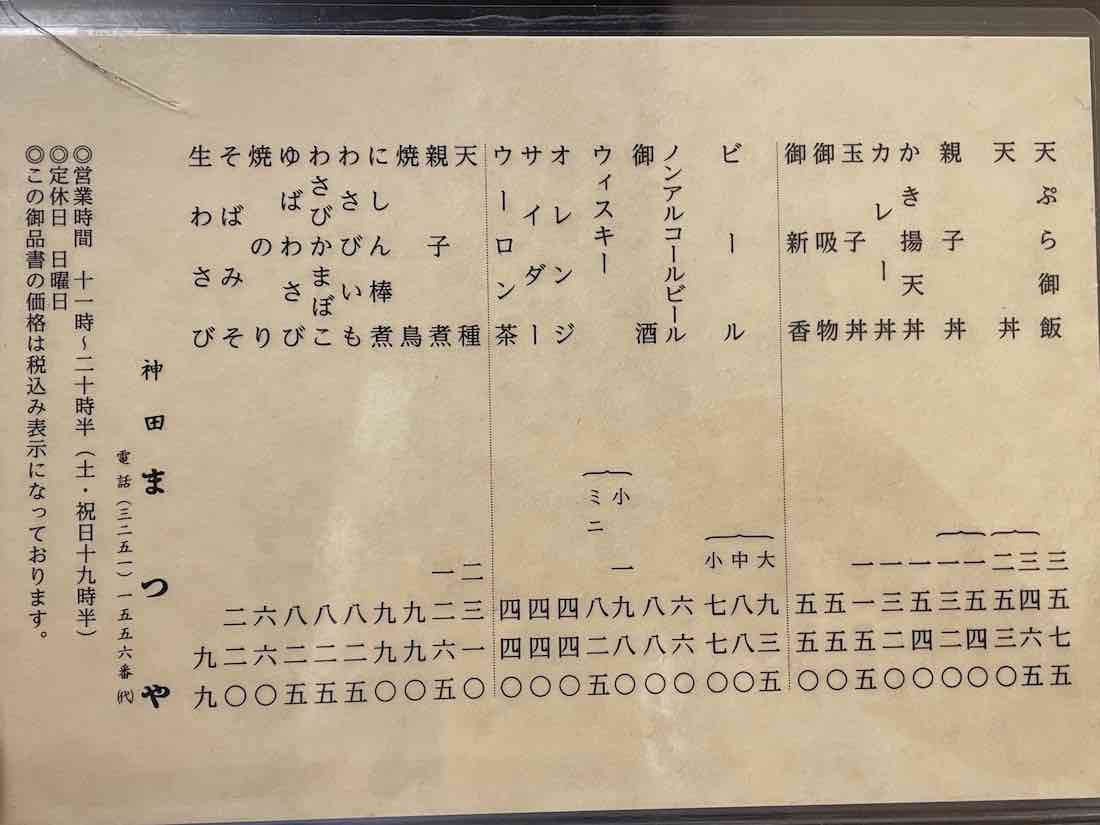 天ぷら御飯 三五七五
天丼 三四六五
二五三〇
親子丼 一五四〇
一三二〇
かき揚天丼 一五四〇
カレー丼 一三二〇
玉子丼 一一五五
御吸物 五五〇
御新香 五五〇
ビール 大 九三五
中 八七〇
小 七七〇
ノンアルコールビール 六六〇
御酒 八八〇
ウィスキー 小 一九八〇
ミニ 八二五
オレンジ 四四〇
サイダー 四四〇
ウーロン茶 四四〇
天種 二三一〇
親子煮 一二六五
焼鳥 九九〇
にしん棒煮 九九〇
わさびいも 八二五
わさびかまぼこ 八二五
ゆばわさび 八二五
焼のり 六六〇
そばみそ 二二〇
生わさび 九九
神田まつや
電話(三二五一)一五五六番(代)
◎営業時間 十一時~二十時半(土・祝日十九時半)
◎定休日 日曜日
◎この御品書の価格は税込み表示になっております。